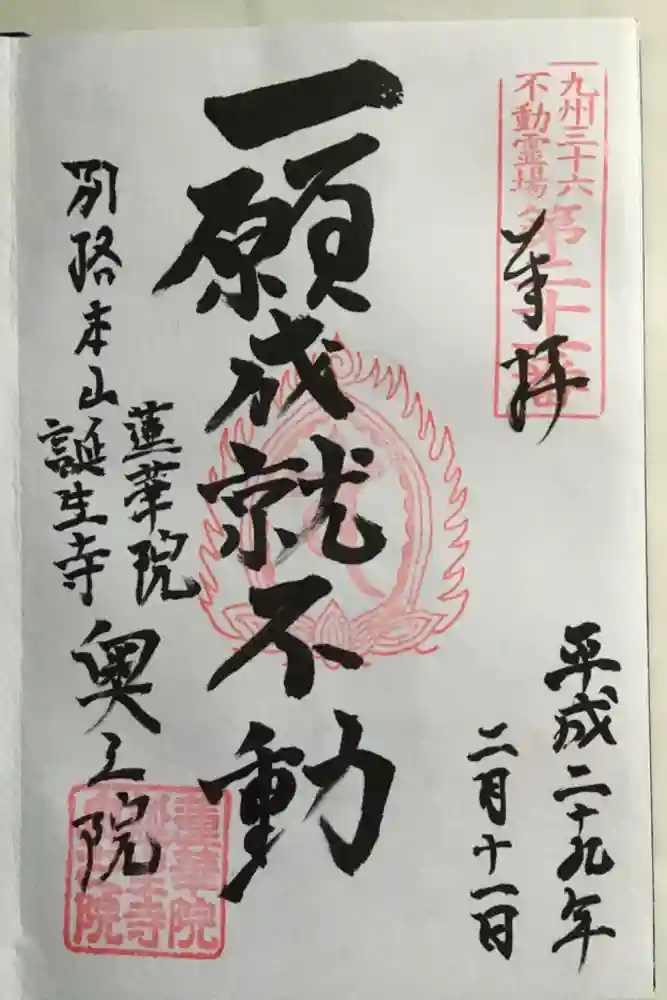 九州三十六
不動霊場
奉拝
平成二十九年
二月十一日
一願成就不動
別格本山
蓮華院
誕生寺
奥之院
蓮華院
誕生寺
奥之院